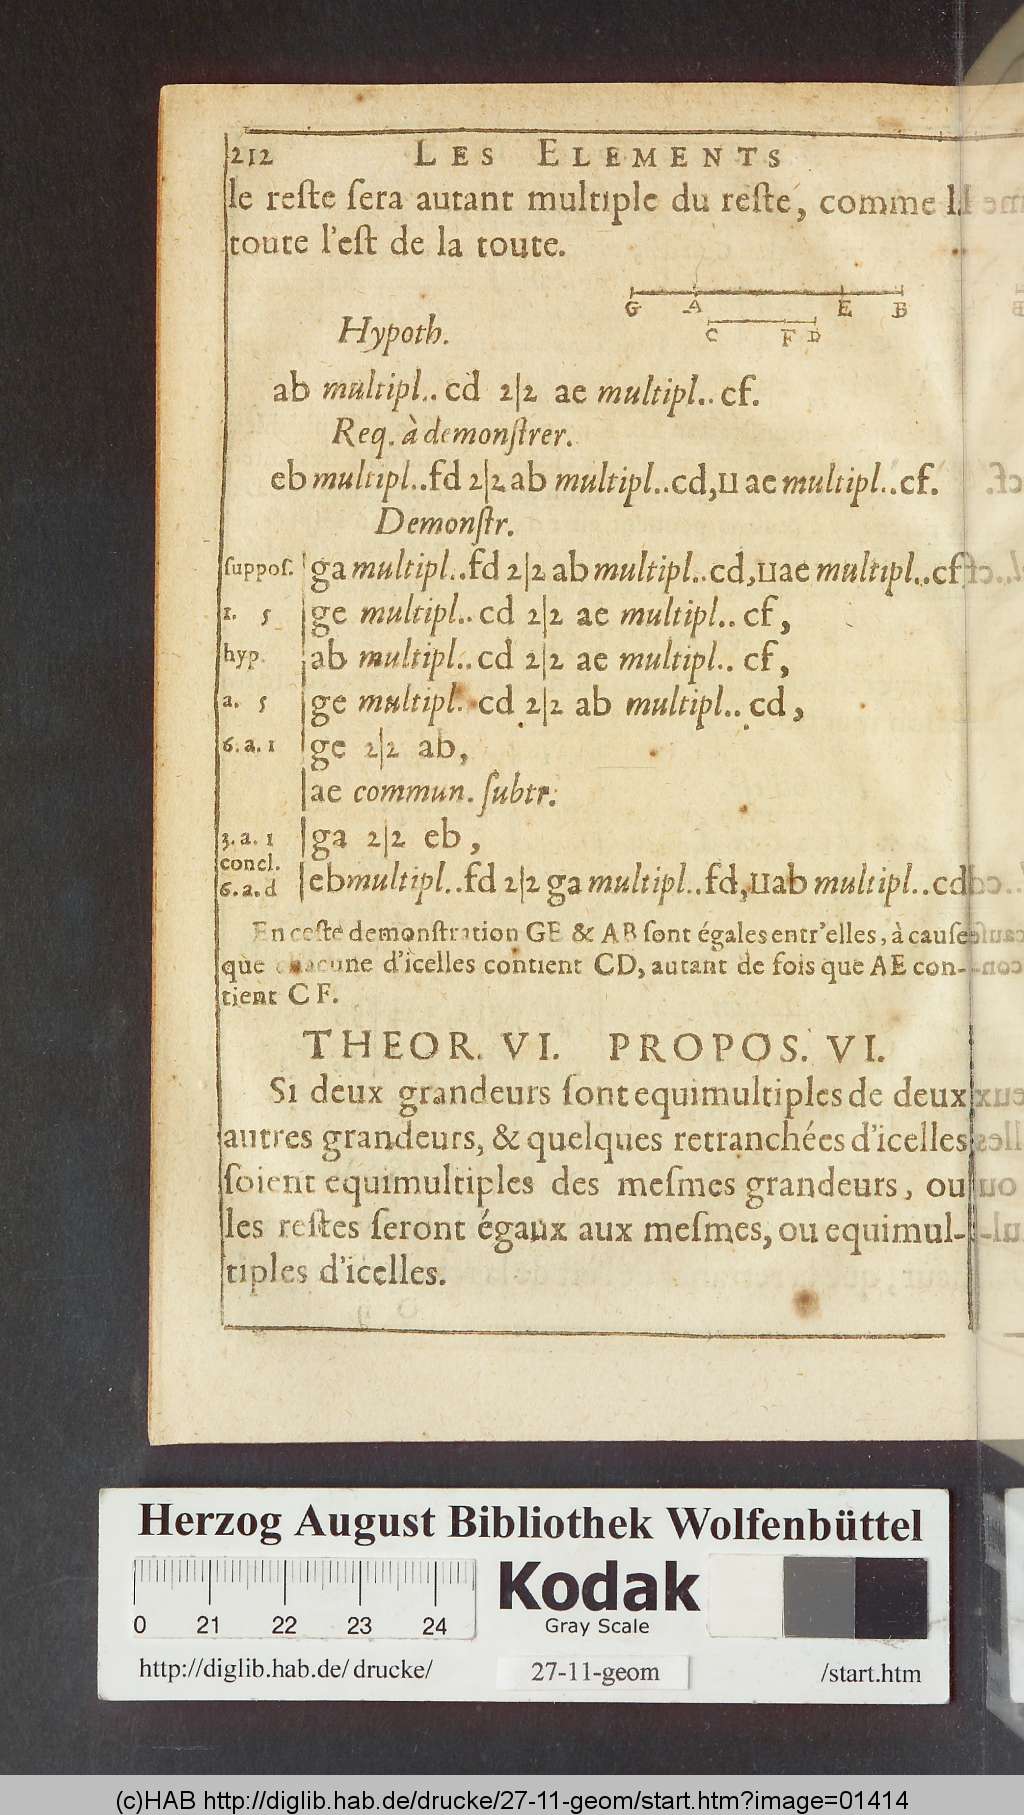 212 LES ELEMENTS
le reſte ſera autant multiple du reſte, comme la
toute l'eſt de la toute.
G A E B
C F D
Hypoth.
ab multipl.. cd 2|2 ae multipl.. cf.
Req. à demonſtrer.
eb multipl..fd 2|2 ab multipl..cd,II ae multipl..cf.
Demonſtr.
ſuppoſ. ga multipl..fd 2|2 ab multipl..cd,II ae multipl..cf
1. 5 ge multipl.. cd 2|2 ae multipl.. cf,
hyp. ab multipl.. cd 2|2 ae multipl.. cf,
a. 5 ge multipl. cd 2|2 ab multipl.. cd,
6. a. 1 ge 2|2 ab,
ae commun. ſubtr.
3. a. 1 ga 2|2 eb,
concl.
6. a. d eb multipl..fd 2|2 ga multipl..fd,II ab multipl..cd
En ceſte demonſtration GE & AB ſont égales entr'elles, à cauſe
que chacune d'icelles contient CD, autant de fois que AE con-
tient CF.
THEOR. VI. PROPOS. VI.
SI deux grandeurs ſont equimultiples de deux
autres grandeurs, & quelques retranchées d'icelles
ſoient equimultiples des meſmes grandeurs, ou
les reſtes ſeront égaux aux meſmes, ou equimul-
tiples d'icelles.
Herzog August Bibliothek Wolfenbüttel
0 21 22 23 24
Kodak
Gray Scale
http://diglib.hab.de/drucke/ 27-11-geom /start.htm
(c)HAB http://diglib.hab.de/drucke/27-11-geom/start.htm?image=01414